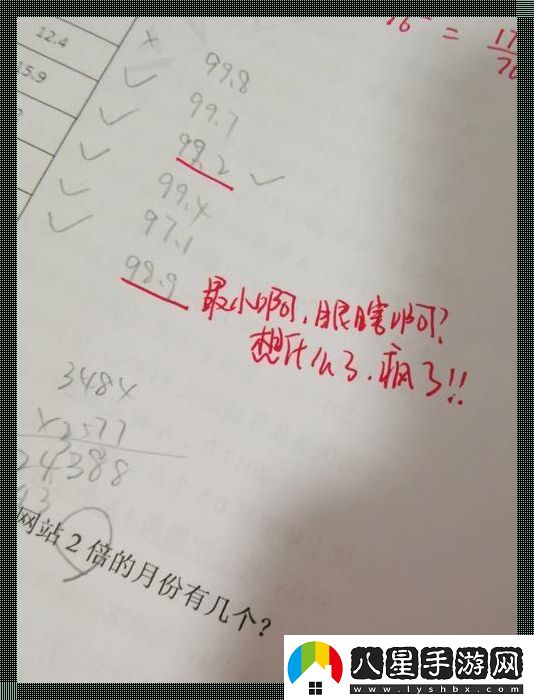 12.4
15.9
99.8
99.7
99.2
99.4
97.1
98.9
= 17
76
最小啊，眼瞎啊？
想什么了，疯了！！
3484
×2577
24388
网站2倍的月份有几个？
八星手游网
www.lyshbx.com